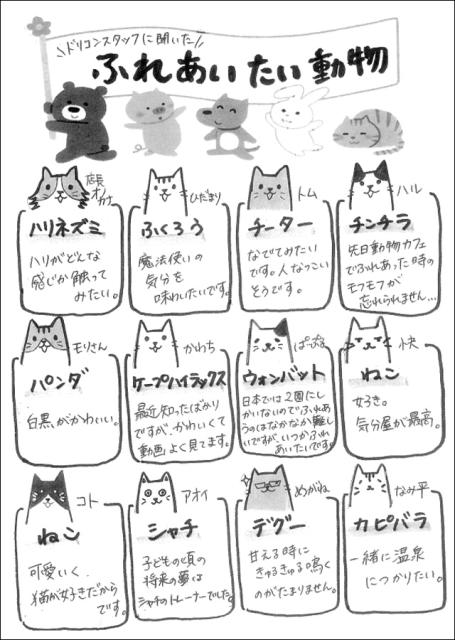 ドリコンスタッフに聞いた
ふれあいたい動物
店長
オノカナ
ハリネズミ
ハリがどんな
感じか触って
みたい。
ひだまり
ふくろう
魔法使いの
気分を
味わいたいです。
トム
チーター
なでてみたい
です。人なつっこい
そうです。
ハル
チンチラ
先日動物カフェ
でふれあった時の
モフモフが
忘れられません…
モリさん
パンダ
白黒がかわいい。
かわち
ケープハイラックス
最近知ったばかり
ですが、かわいくて
動画よく見てます。
ウォンバット
日本では2園にし
かいないのでふれあ
うのはなかなか難し
いですが、いつかふれ
あいたいです。
小快
ねこ
好き。
気分屋が最高。
コト
ねこ
可愛いく、
猫が好きだから
です。
アオイ
シャチ
子どもの頃の
将来の夢は
シャチのトレーナーでした。
めがね
デグー
甘える時に
きゅるきゅる鳴く
のがたまりません。
なみ平
カピバラ
一緒に温泉
につかりたい。